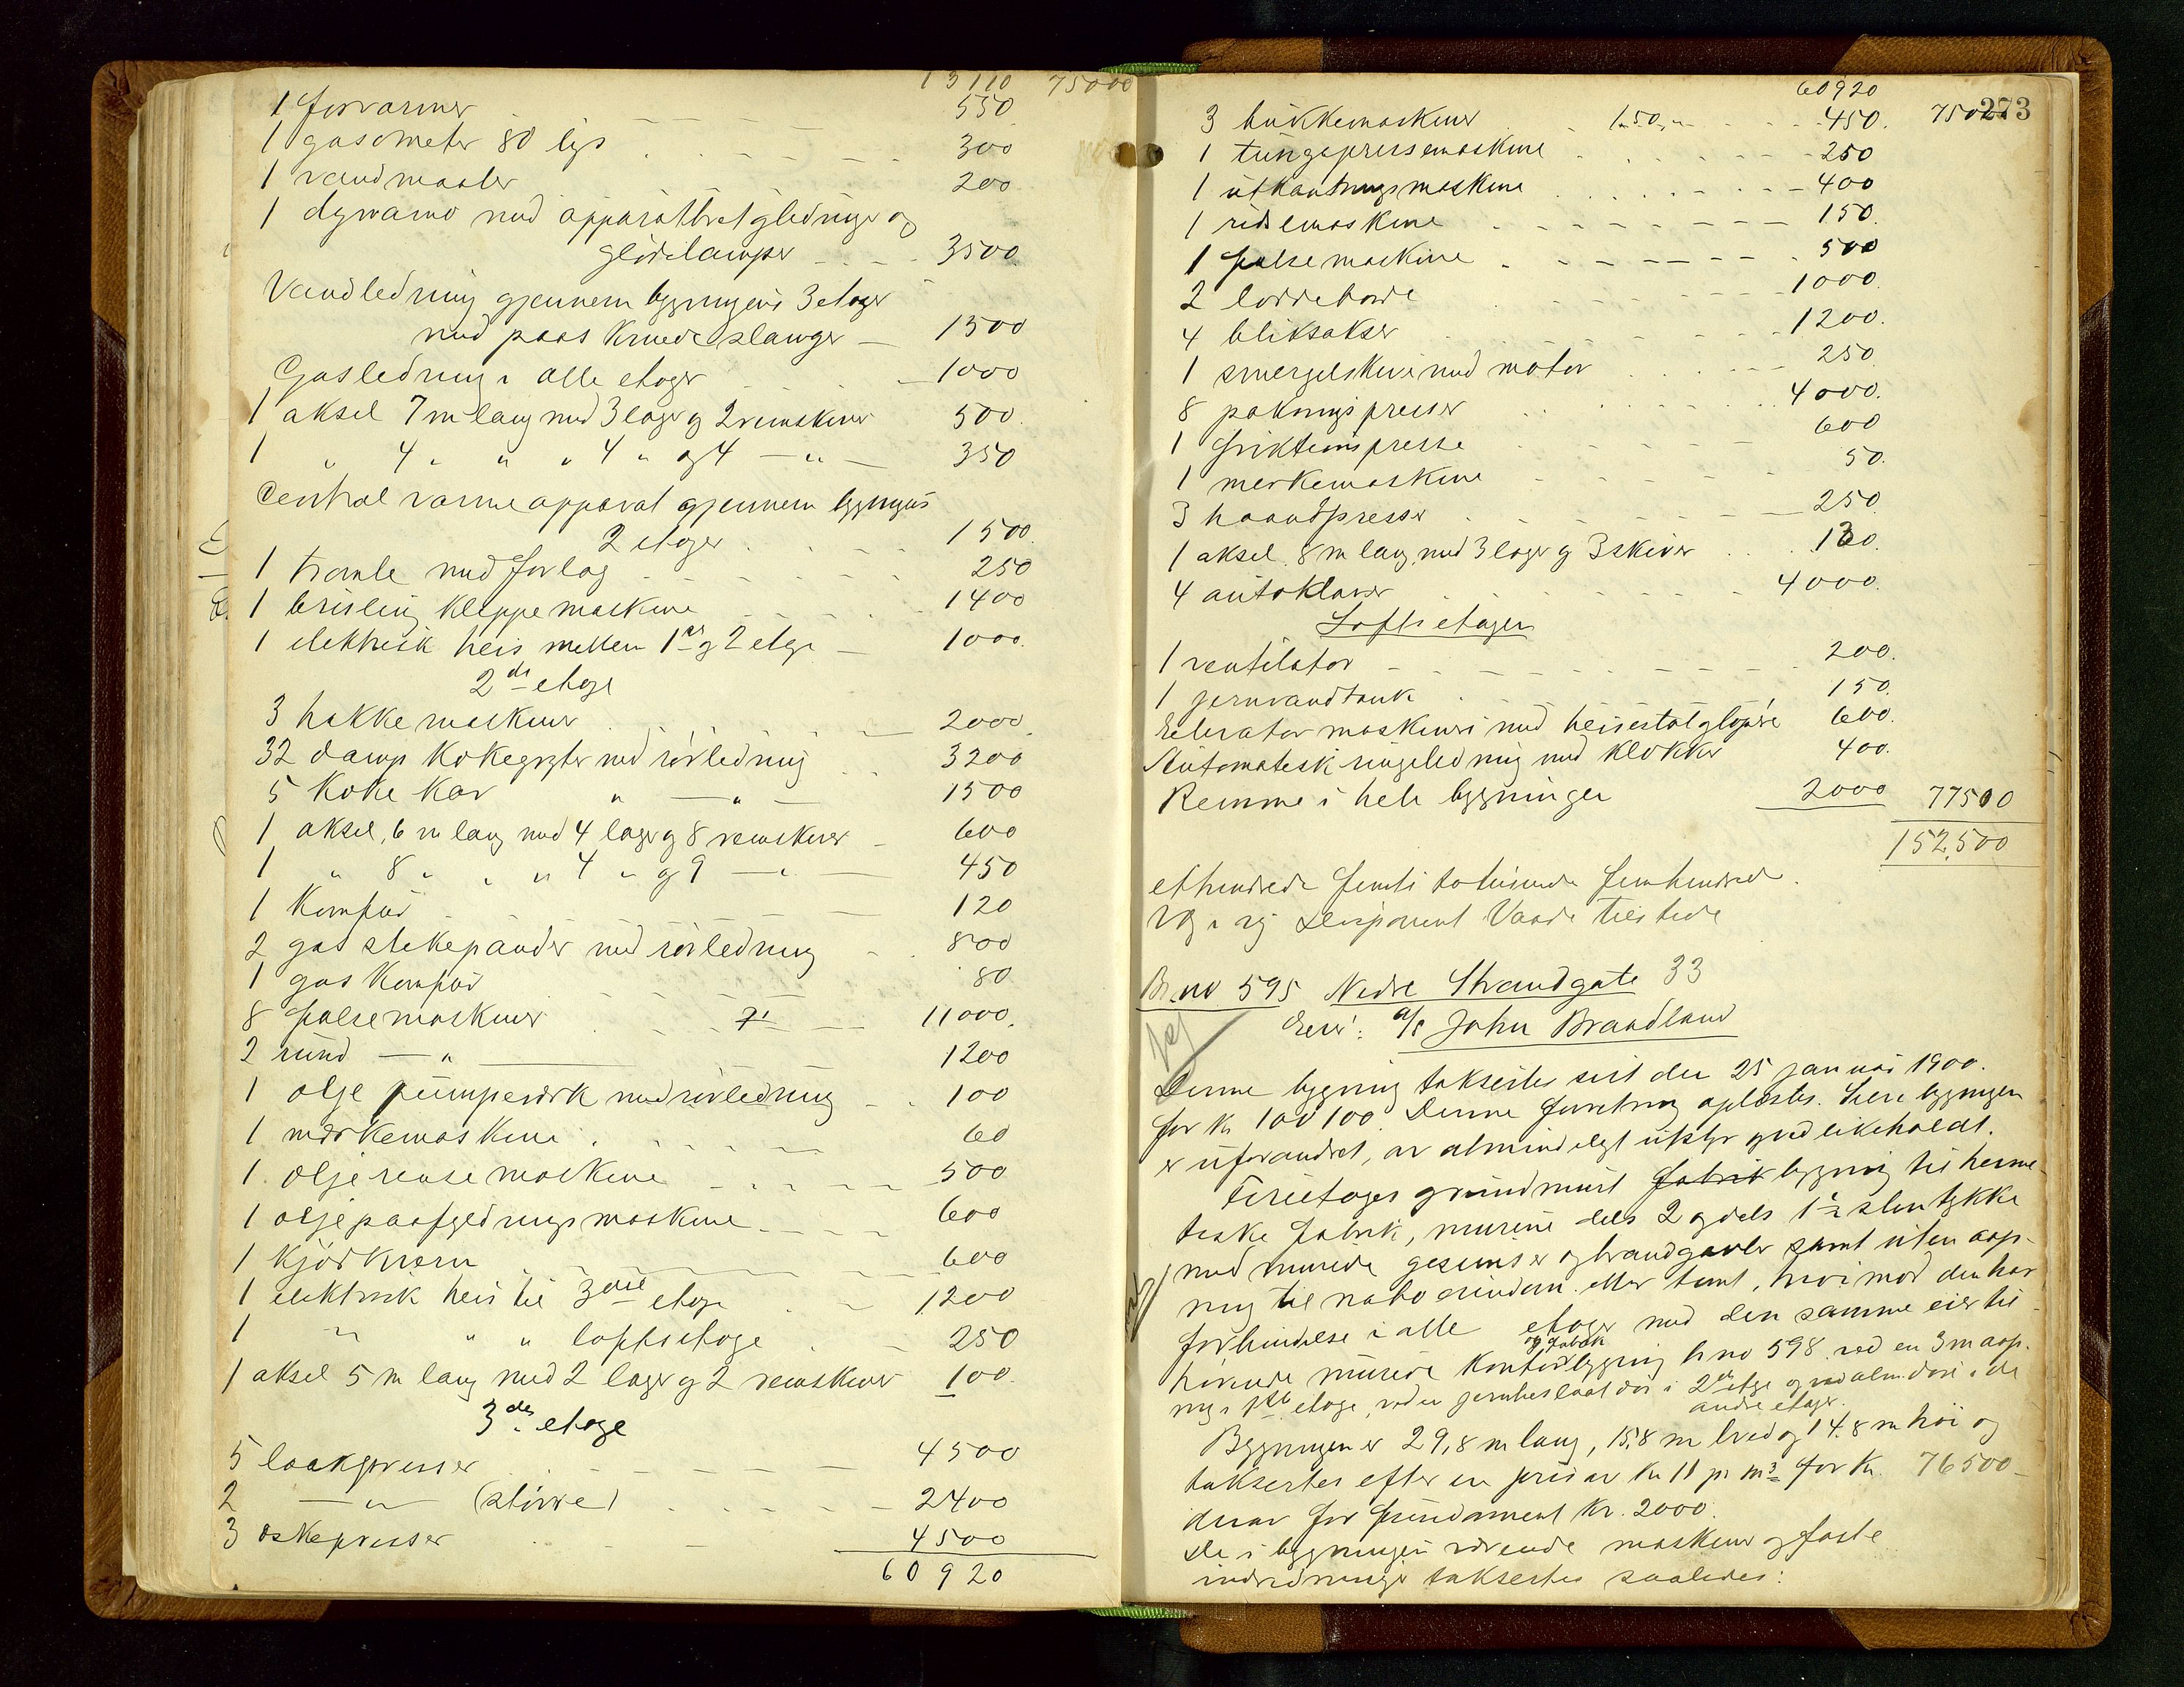 13110 75000
1 forvarmer 550
1 gasometer 80 lys 300
1 vandmaaler 200
1 dynamo med apparattavl ledninger og
glödelamper 3500
Vandledning gjennem bygningens 3 etager
med paaskruede slanger 1500
Gasledning i alle etager 1000
1 aksel 7 m lang med 3 lager og 2 remskiver 500
1 " 4 " " " 4 " og 4 — " — 350
Central varmeapparat gjennem bygningens
2 etager 1500
1 tromle med forlag 250
1 brisling kleppemaskine 1400
1 elektrisk heis mellem 1ste og 2 etage 1000
2den etage
3 hakkemaskiner 2000
32 damp kokegryter med rörledning 3200
5 koke kar " — " — 1500
1 aksel, 6 m lang med 4 lager og 8 remskiver 600
1 " 8 " " " 4 " og 9 — " — 450
1 komfur 120
2 gas stekepander med rörledning 800
1 gas komfur 80
8 falsemaskiner 11000
2 rund — " — 1200
1 olje pumpeverk med rörledning 100
1 merkemaskine 60
1 oljerensemaskine 500
1 oljepaafyldningsmaskine 600
1 kjödkvern 600
1 elektrisk heis til 3die etage 1200
1 " " " loftsetage 250
1 aksel 5 m lang med 2 lager og 2 remskiver 100
3die etage
5 laakpresser 4500
2 — " — (större) 2400
3 eskepresser 4500
60920
60920
273
3 bukkemaskiner 150,- 450. 75000
1 tungepressemaskine 250
1 utkantningsmaskine 400
1 ridsemaskine 150.
1 falsemaskine 500
2 loddeborde 1000.
4 bliksakser 1200.
1 smergelskive med motor 250
8 pakningspresser 4000.
1 friktionspresse 600
1 merkemaskine 50.
3 haandpresser 250
1 aksel 8 m lang med 3 lager og 3 skiver 130.
4 autoklaver 4000.
Loftsetagen
1 ventilator 200.
1 jernvandtank 150.
Elevator maskineri med heisestol og löpere 600.
Automatisk ringeledning med klokker 400.
Remme i hele bygningen 2000 77500
152,500
ethundrede femti to tusinde femhundrede.
Disponent Vaade tilstede
Br.no 595 Nedre Strandgate 33
Eier: a/s John Braadland
Denne bygning taksertes sist den 25 januar 1900.
for kr 100100. Denne forretning oplæstes. Hele bygningen
er uforandret, av almindelig utstyr og vedlikeholdt.
Tireetages grundmurt fabrik bygning til herme-
tiske fabrik, murene dels 2 og dels 1½ sten tykke
med murede gesimser og brandgavler samt uten aap-
ning til nabo eiendom eller tomt, hvorimod den har
forbindelse i alle etager med den samme eier til-
hörende murede kontor og fabrik bygning br no 598 ved en 3 m aap-
ning i 1ste etage, ved en jernbeslaat dör i 2den etage og ved alm. döre i de
andre etager.
Bygningen er 29,8 m lang, 15,8 m bred og 14.8 m höi og
taksertes efter en pris av kr 11 pr m³ for kr. 76500-
derav for fundament kr. 2000.
De i bygningen værende maskiner og faste
indredninger taksertes saaledes: